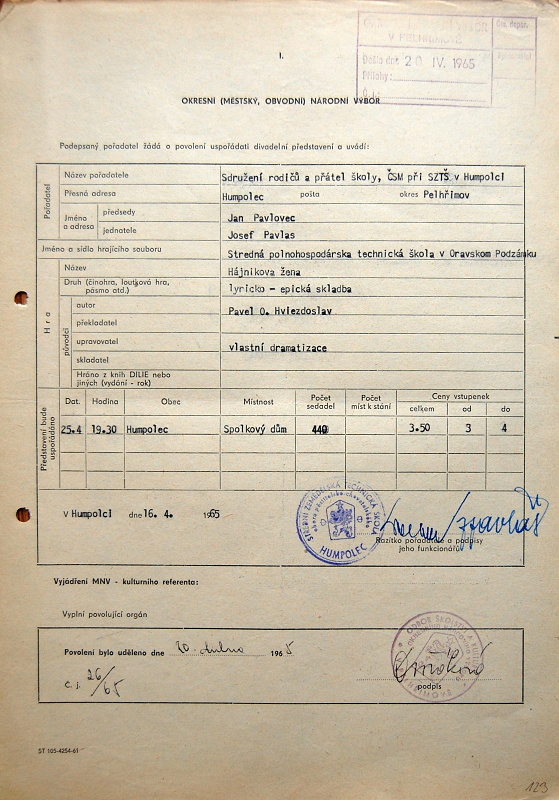 V PELHŘIMOVĚ
Došlo dne 20 IV. 1965
Přílohy:
Č. j.:
I.
OKRESNÍ (MĚSTSKÝ, OBVODNÍ) NÁRODNÍ VÝBOR
Podepsaný pořadatel žádá o povolení uspořádati divadelní představení a uvádí:
Pořadatel
Název pořadatele Sdružení rodičů a přátel školy, ČSM při SZTŠ v Humpolci
Přesná adresa Humpolec pošta okres Pelhřimov
Jméno a adresa
předsedy Jan Pavlovec
jednatele Josef Pavlas
Jméno a sídlo hrajícího souboru Stredná polnohospodárska technická škola v Oravskom Podzámku
Hra
Název Hájnikova žena
Druh (činohra, loutková hra, pásmo atd.) lyricko - epická skladba
původci
autor Pavel O. Hviezdoslav
překladatel
upravovatel vlastní dramatizace
skladatel
Hráno z knih DILIE nebo
jiných (vydání - rok)
Představení bude uspořádáno
Dat. Hodina Obec Místnost Počet sedadel Počet míst k stání Ceny vstupenek
celkem od do
25.4 19.30 Humpolec Spolkový dům 440 3.50 3 4
V Humpolci dne 16. 4. 1965
STŘEDNÍ ZEMĚDĚLSKÁ TECHNICKÁ ŠKOLA
HUMPOLEC
Razítko pořadatele a podpisy
jeho funkcionářů
Vyjádření MNV - kulturního referenta:
Vyplní povolující orgán
Povolení bylo uděleno dne 20. dubna 1965
Č. j. 26/65
podpis
ST 105-4254-61
123